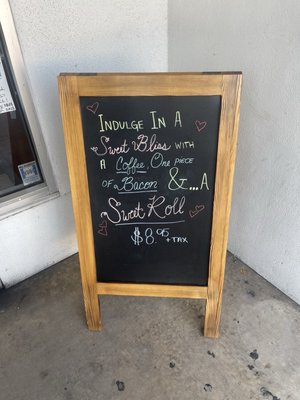 Indulge In A
Sweet Bliss with
a Coffee, One piece
of Bacon &...A
Sweet Roll
$8.95 +TAX